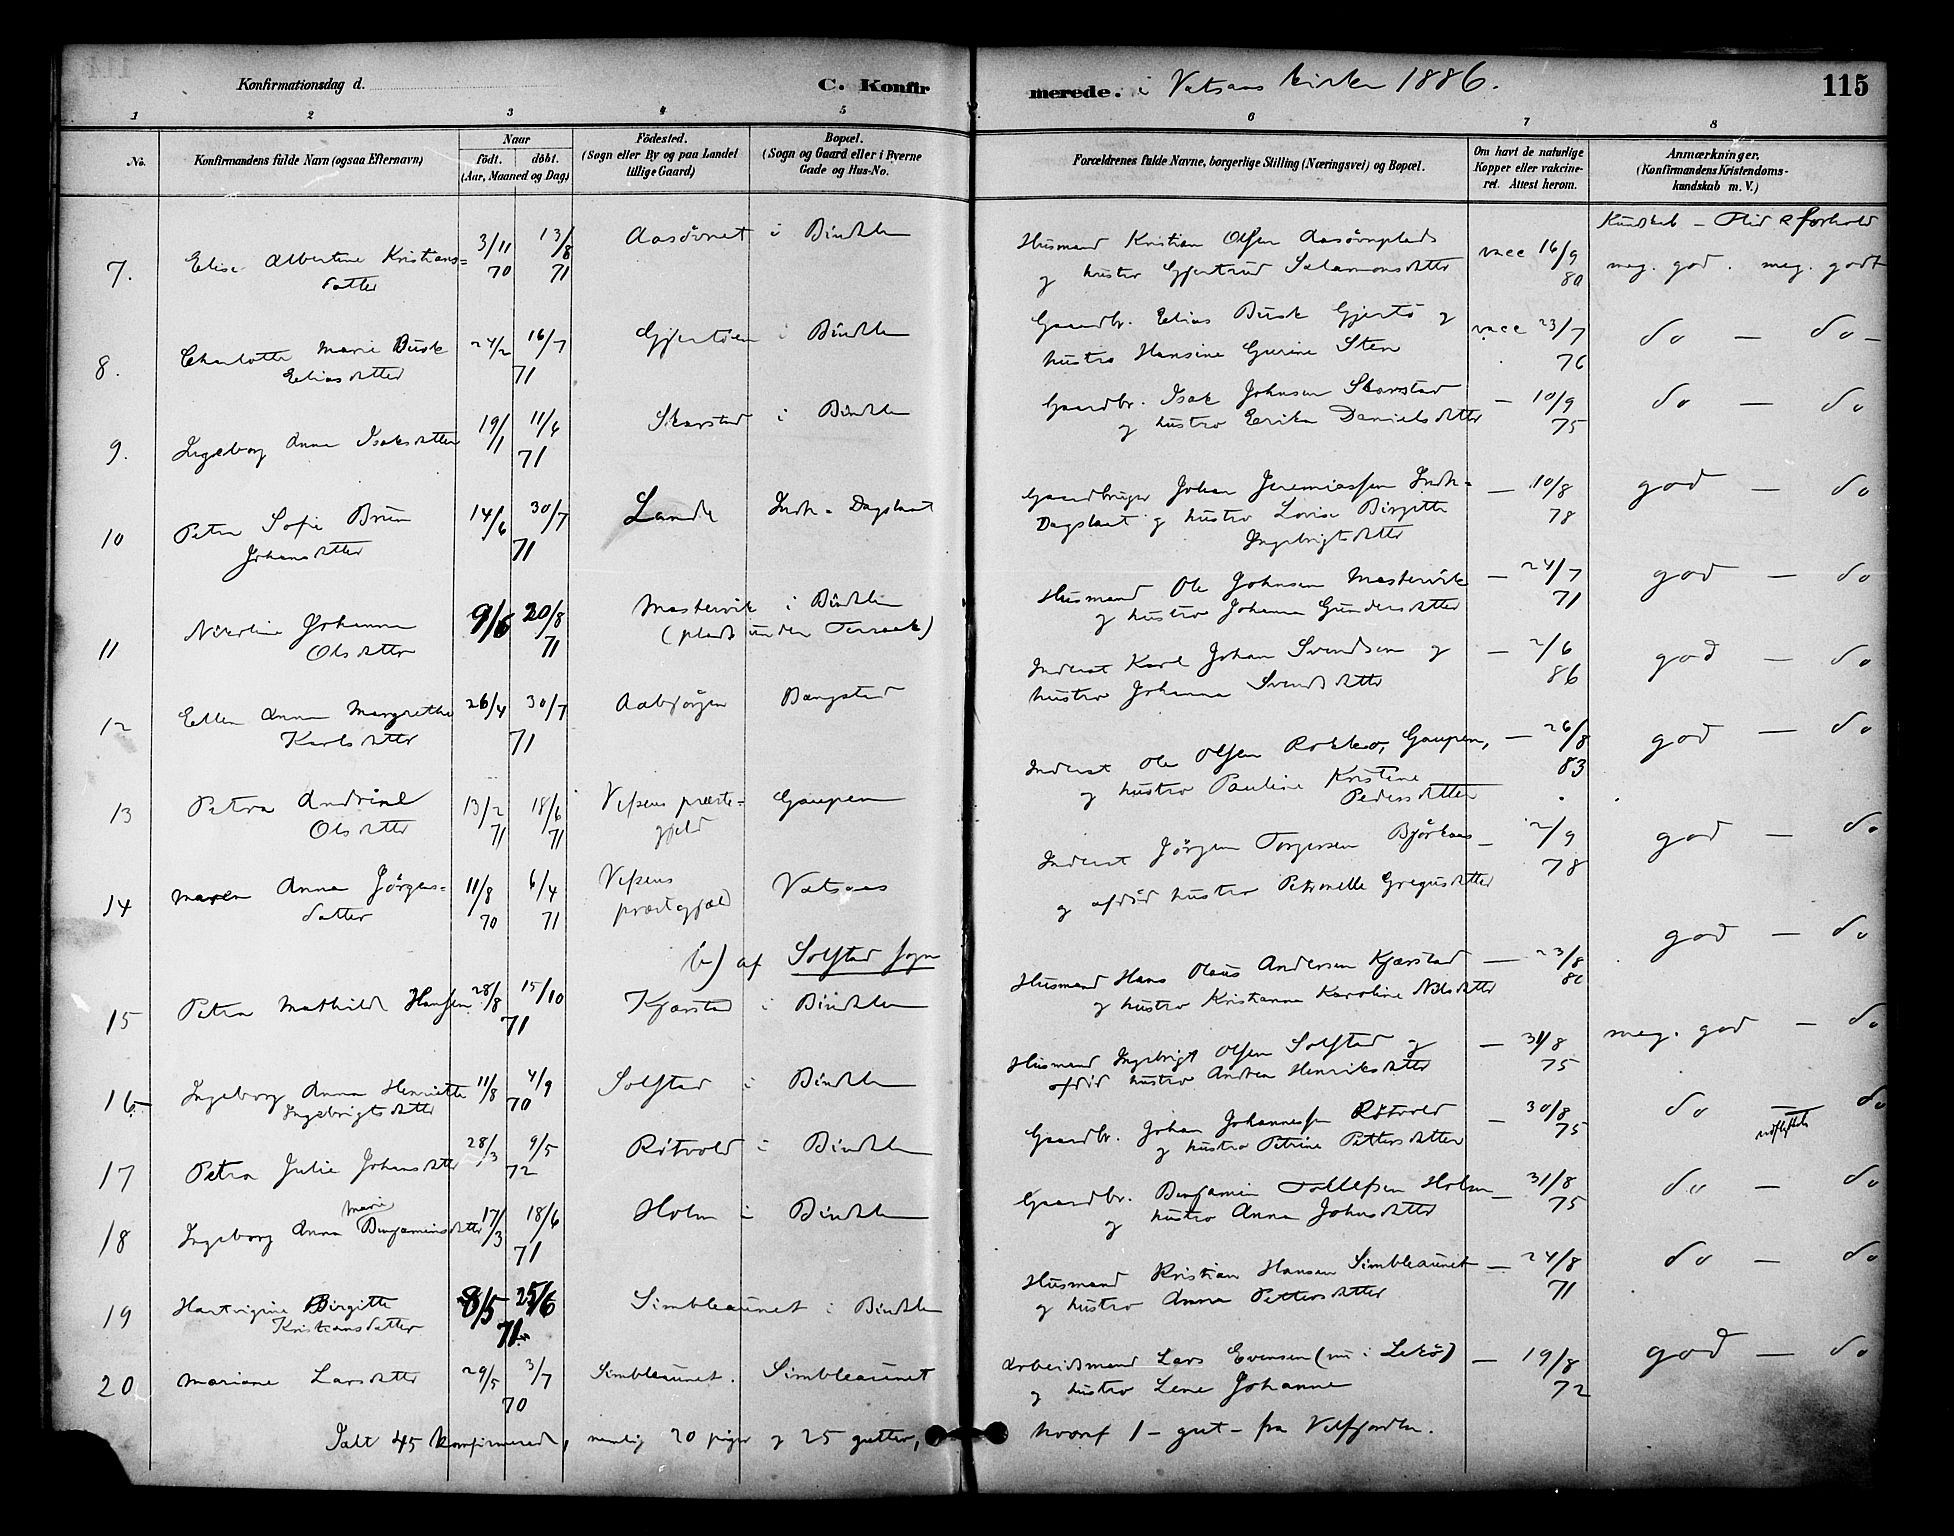 Konfirmationsdag d.
C. Konfirmerede. i Vatsaas kirke 1886.
115
1 2 3 4 5 6 7 8
No.
Konfirmandens fulde Navn (ogsaa Efternavn)
Naar
født. døbt.
(Aar, Maaned og Dag)
Födested.
(Sogn eller By og paa Landet
tillige Gaard)
Bopæl.
(Sogn og Gaard eller i Byerne
Gade og Hus-No.
Forældrenes fulde Navne, borgerlige Stilling (Næringsvei) og Bopæl.
Om havt de naturlige
Kopper eller vakcine-
ret. Attest herom.
Anmærkninger.
(Konfirmandens Kristendoms-
kundskab m. V.)
Kundskab – Flid & forhold
7. Elise Albertine Kristians=
datter
3/11 70 13/8 71
Aasövnet i Bindalen
Husmand Kristian Olsen Aasövnplads
og hustro Gjertrud Salamonsdatter
vacc 16/9 80
meg. god. meg. godt
8. Charlotte Marie Busk
Eliasdatter
24/2 16/7 71
Gjertöen i Bindalen
Gaardbr. Elias Busk Gjertö og
hustro Hansine Gurine Sten
vacc 23/7 76
do – do –
9. Ingeborg Anna Isaksdatter
19/1 11/6 71
Skarstad i Bindalen
Gaardbr. Isak Johnsen Skarstad
og hustro Erika Danielsdatter
– 10/9 75
do – do
10 Petra Sofie Brun
Johansdatter
14/6 30/7 71
Lande Indr. Dagslaat
Gaardbruger Johan Jeremiassen Indr=
Dagslaat og hustro Lovise Birgitte
Ingebrigtsdatter
– 10/8 78
god – do
11 Nicoline Johanna
Olsdatter
9/6 20/8 71
Mastervik i Bindalen
(plads under Terraak)
Husmand Ole Johnsen Mastervik
og hustro Johanna Gundersdatter
– 24/7 71
god – do
12 Ellen Anna Margrethe
Karlsdatter
26/4 30/7 71
Aabjörgen Bangstad
Inderst Karl Johan Svendsen og
hustro Johanna Svendsdatter
– 2/6 86
god – do
13 Petra Andrine
Olsdatter
13/2 71 18/6 71
Vefsens præste=
gjeld
Gaupen
Inderst Ole Olsen Gaupen,
og hustro Pauline Kristine
Pedersdatter
– 26/8 83
god – do
14 Maren Anna Jörgens=
datter
11/8 70 6/4 71
Vefsens
præstegjæld
Vatsaas
Inderst Jörgen Torgersen Björkaas
og afdöd hustro Petronelle Gregusdatter
– 2/9 78
god – do
b) af Solstad sogn
15 Petra Mathilde Hansen
28/8 15/10 71
Kjærstad i Bindalen
Husmand Hans Olaus Andersen Kjærstad
og hustro Kristianna Karoline Nilsdatter
– 23/8
god – do
16 Ingeborg Anna Henriette
Ingebrigtsdatter
11/8 4/9 70
Solstad i Bindalen
Husmand Ingebrigt Olsen Solstad og
afdöd hustro Andrea Henriksdatter
– 31/8 75
meg. god – do
17 Petra Julie Johansdatter
28/3 9/5 72
Rötvold i Bindalen
Gaardbr. Johan Johannessen Rötvold
og hustro Petrine Pettersdatter
– 30/8 75
do – do
udflyttet
18 Ingeborg Anna Marie Benjaminsdatter
17/3 18/6 71
Holm i Bindalen
Gaardbr. Benjamin Tollefsen Holm
og hustro Anna Johnsdatter
– 31/8 75
do – do
19 Hartvigine Birgitte
Kristiansdatter
8/5 25/6 71
Simbleaunet i Bindalen
Husmand Kristian Hansen Simbleaunet
og hustro Anna Pettersdatter
– 24/8 71
do – do
20 Mariane Larsdatter
29/5 3/7 70
Simbleaunet. Simbleaunet
Arbeidsmand Lars Evensen (nu i Lekö)
og hustro Lene Johanne
– 19/8 72
god – do
Ialt 45 konfirmerede, nemlig 20 piger og 25 gutter, hvoraf 1 – gut – fra Velfjorden.